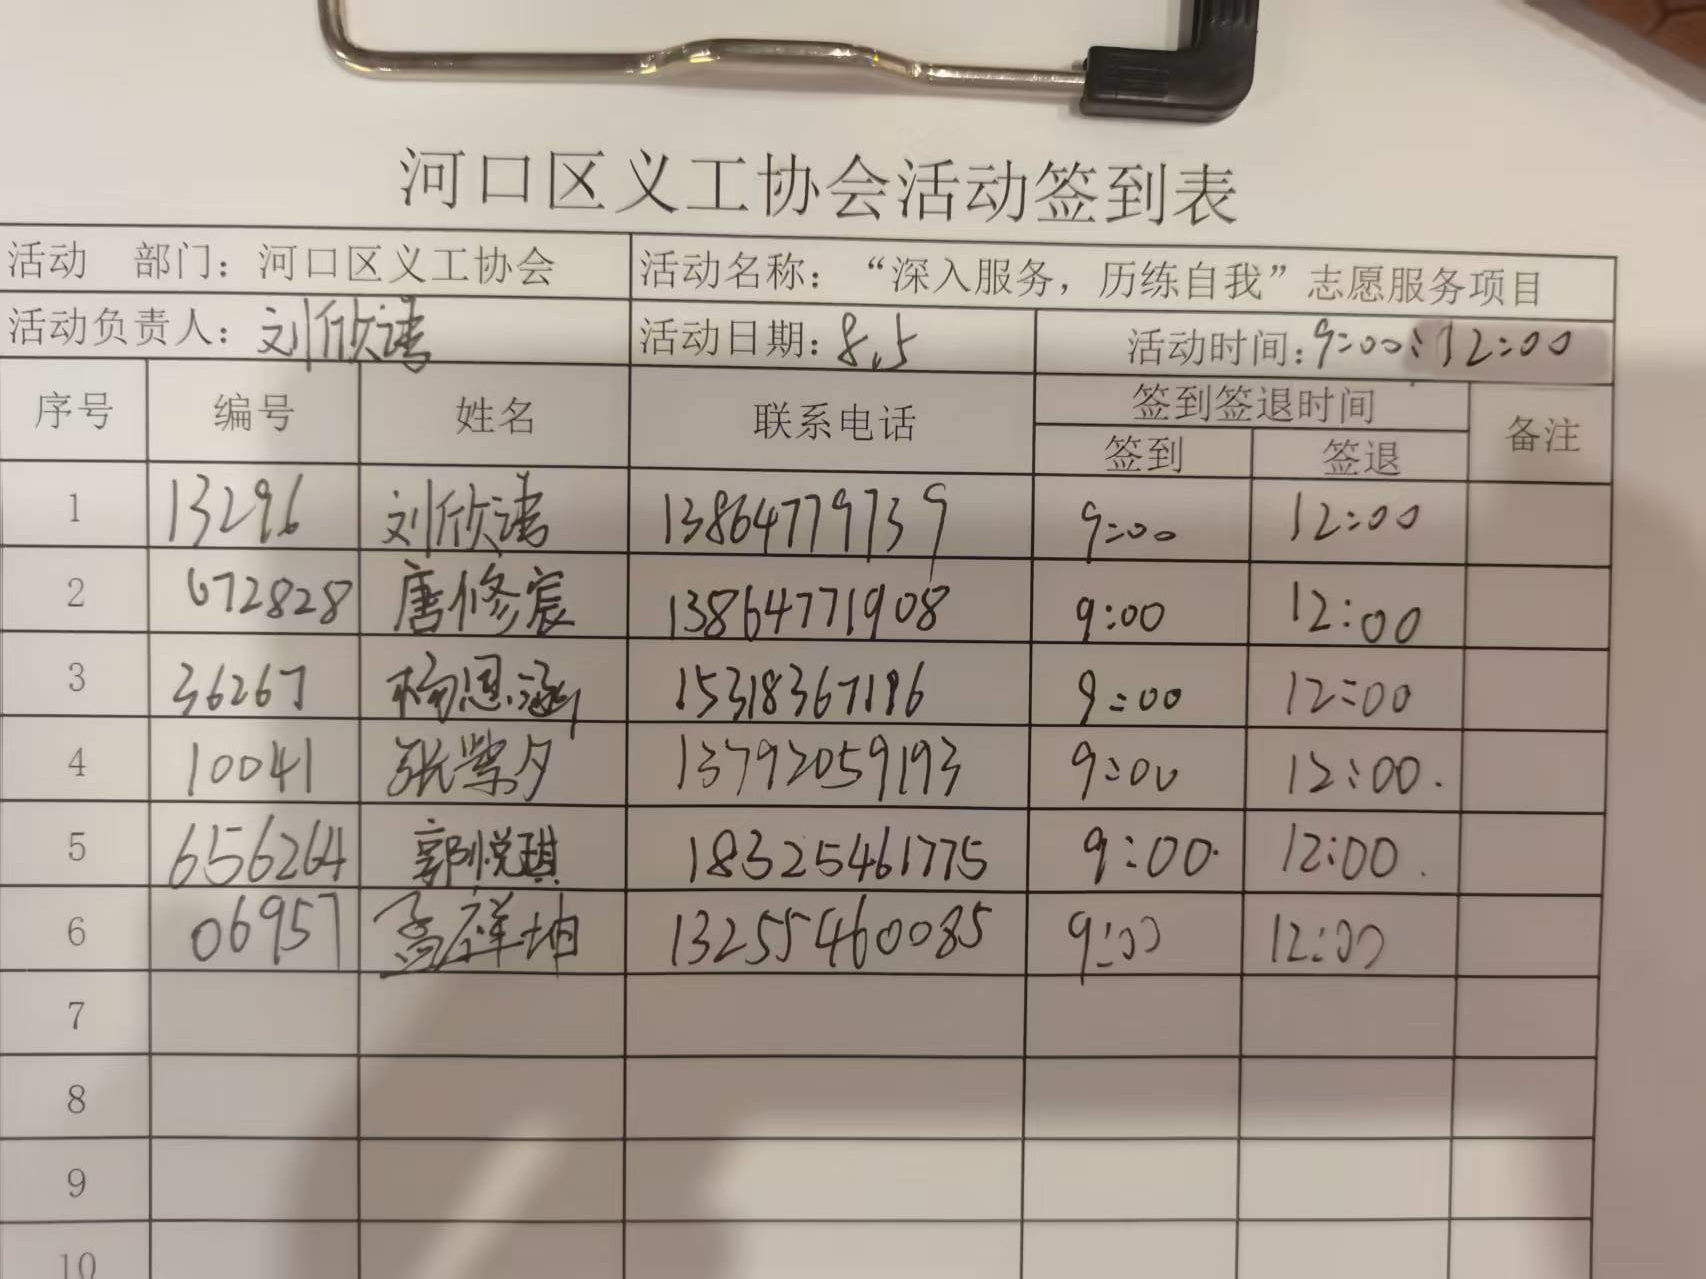 河口区义工协会活动签到表
活动 部门：河口区义工协会 活动名称：“深入服务，历练自我”志愿服务项目
活动负责人：刘欣 活动日期：8.5 活动时间：9:00:12:00
序号 编号 姓名 联系电话 签到签退时间 备注
签到 签退
1 13296 刘欣 13864779739 9:00 12:00
2 672828 唐修宸 13864771908 9:00 12:00
3 36267 杨恩涵 15318367196 9:00 12:00
4 10041 张紫夕 13792059193 9:00 12:00.
5 656264 郭悦琪 18325461775 9:00. 12:00.
6 06957 孟祥坤 13255460085 9:00 12:00
7
8
9
10